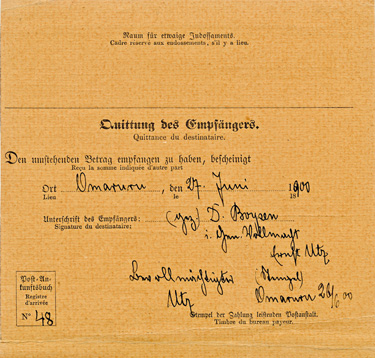 Raum für etwaige Indossaments.
Cadre réservé aux endossements, s'il y a lieu.
Quittung des Empfängers.
Quittance du destinataire.
Den umstehenden Betrag empfangen zu haben, bescheinigt
Reçu la somme indiquée d'autre part
Ort Omaruru, den 27. Juni 1900
Lieu le 18
Unterschrift des Empfängers: (gez) D. Boysen
Signature du destinataire:
i. Gen. Vollmacht
Ernst Utz
Bevollmächtigter (Stempel)
Utz Omaruru 26/6 00
Post-Ankunftsbuch
Registre d'arrivée
N° 48
Stempel der Zahlung leistenden Postanstalt.
Timbre du bureau payeur.